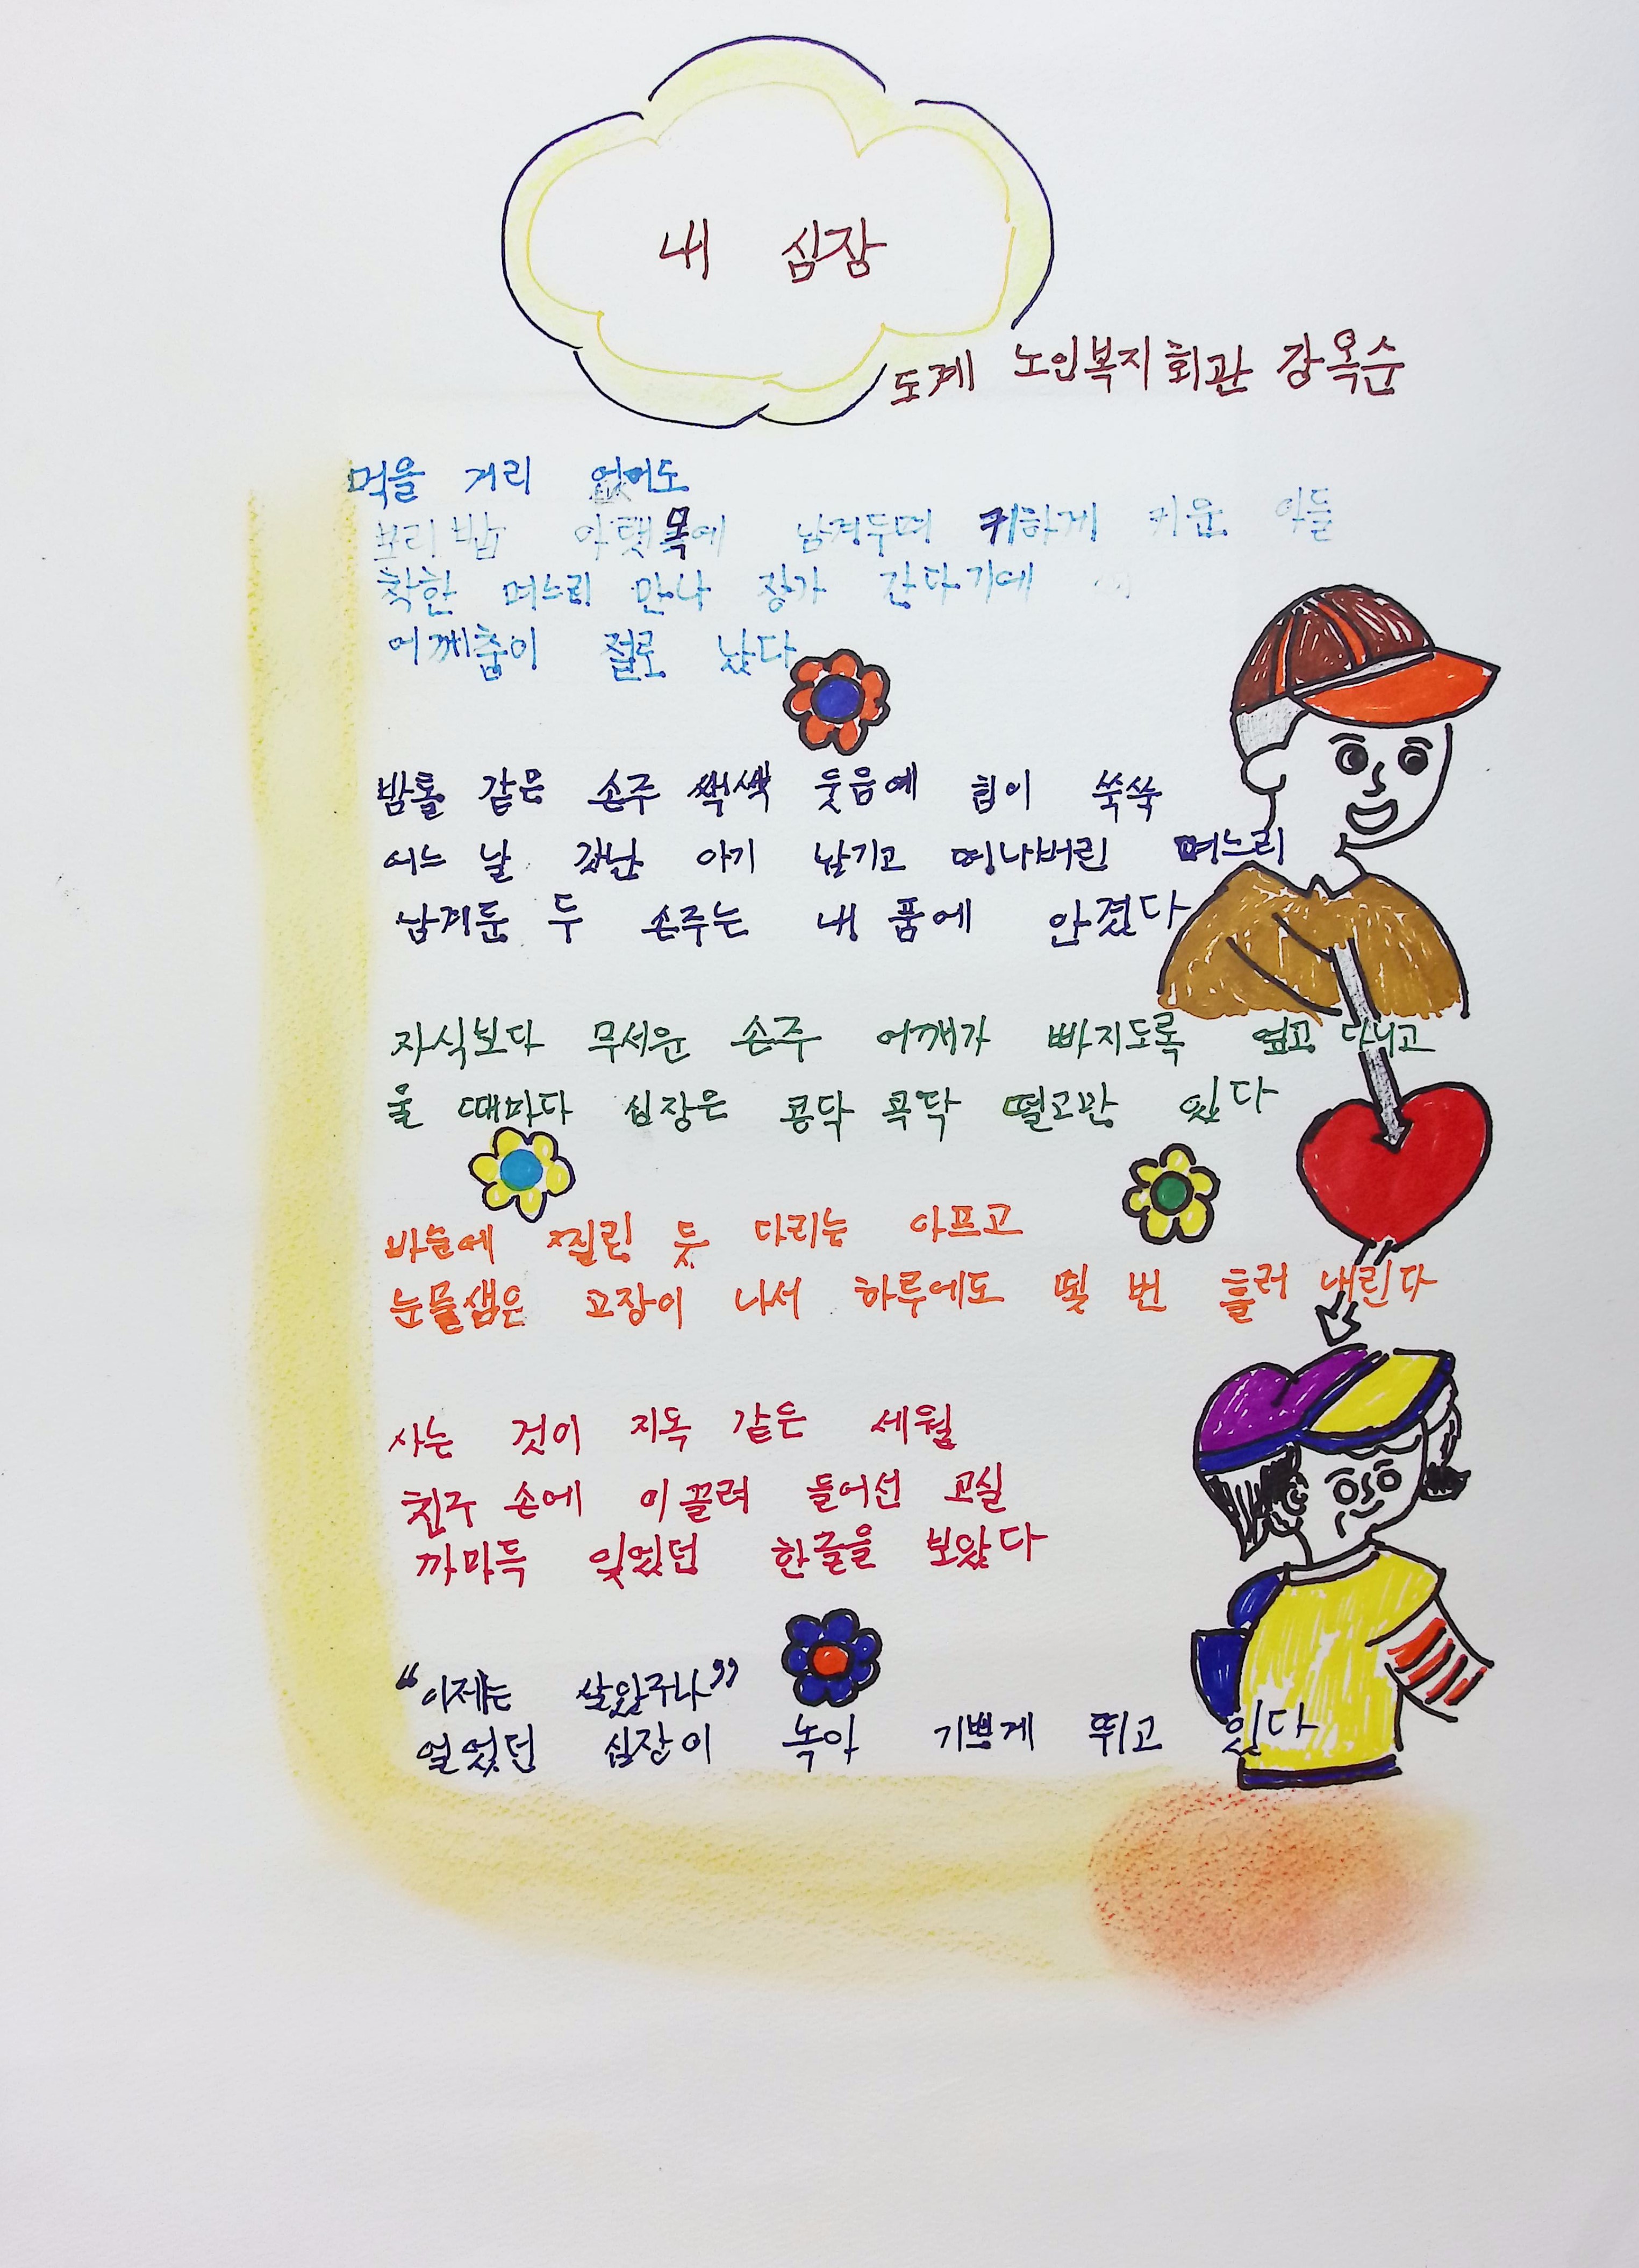 내 심장
도계 노인복지회관 강옥순
먹을 거리 없어도
보리밥 아랫목에 남겨두며 귀하게 키운 아들
착한 며느리 만나 장가 간다기에
어깨춤이 절로 났다
밤톨 같은 손주 쌕쌕 웃음에 힘이 쑥쑥
어느 날 갓난 아기 남기고 떠나버린 며느리
남겨둔 두 손주는 내 품에 안겼다
자식보다 무서운 손주 어깨가 빠지도록 업고 다니고
울 때마다 심장은 콩닥 콕닥 떨고만 있다
바늘에 찔린 듯 다리는 아프고
눈물샘은 고장이 나서 하루에도 몇 번 흘러 내린다
사는 것이 지독 같은 세월
친구 손에 이끌려 들어선 교실
까마득 잊었던 한글을 보았다
“이제는 살았구나”
얼었던 심장이 녹아 기쁘게 뛰고 있다